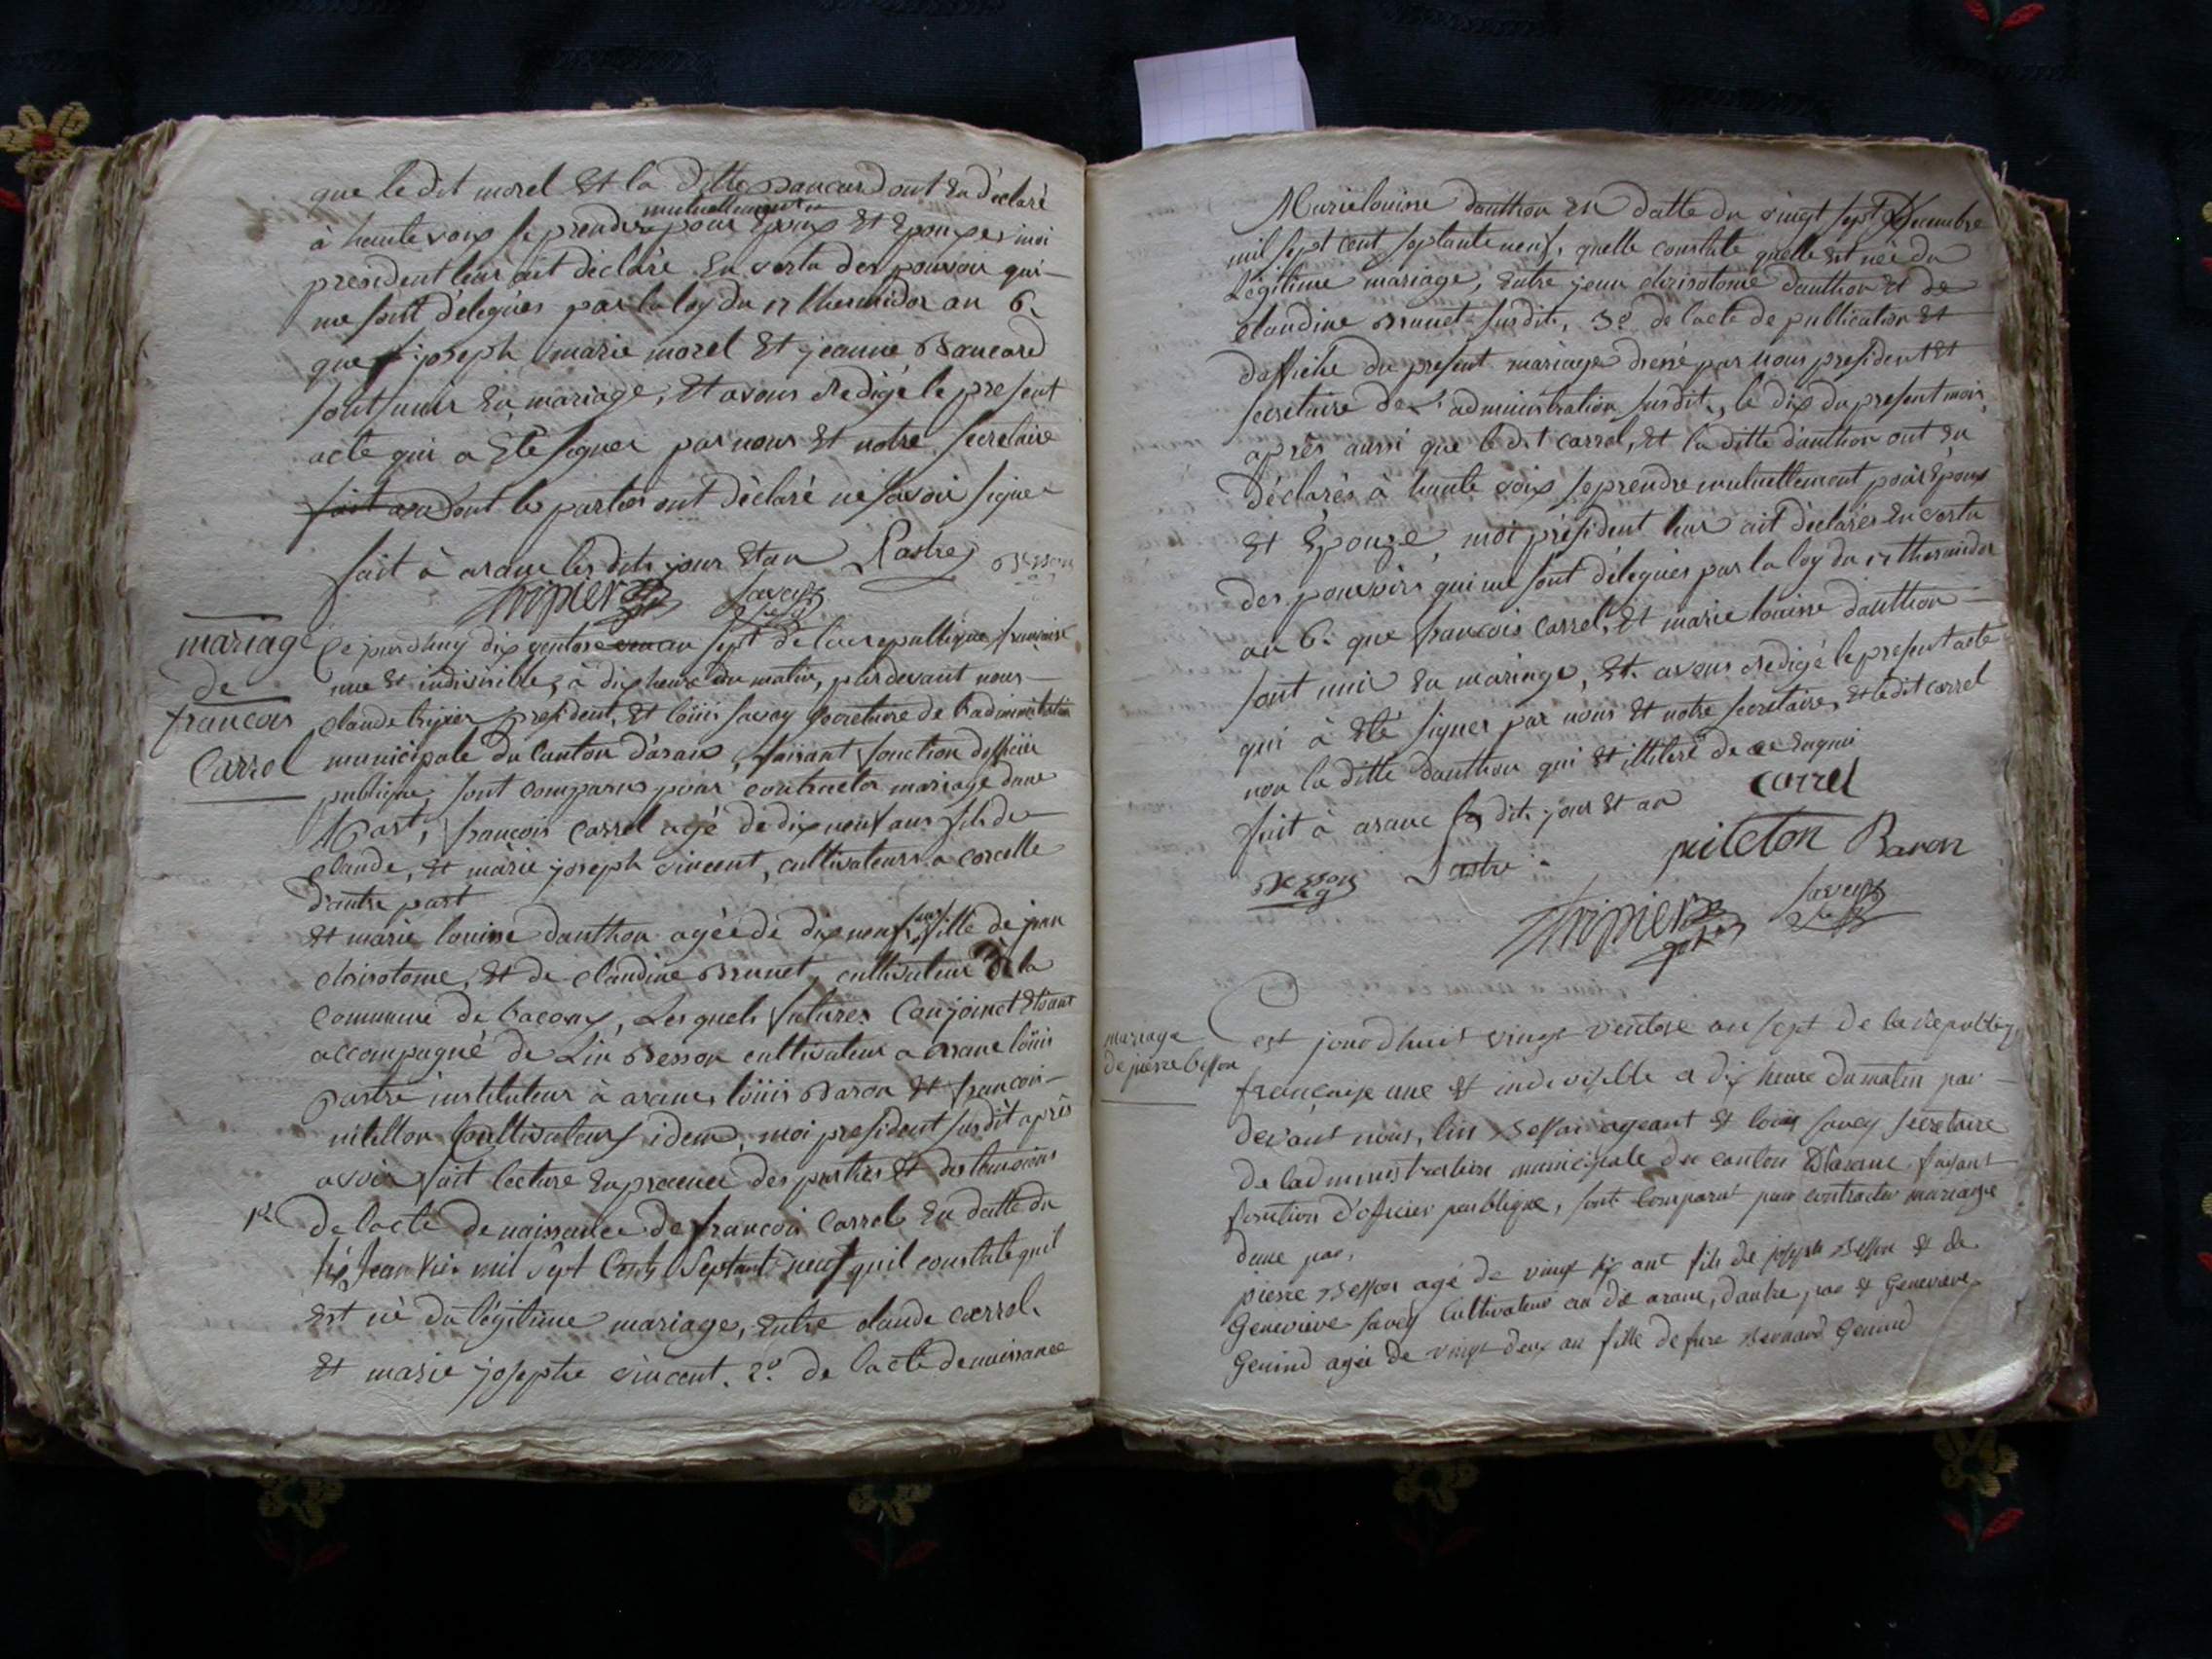 que le dit morel Et la ditte Bancard ont Eu déclaré
mutuellement
à haute voix se prendre pour Epoux Et Epouze, moi
president leur ait déclaré En vertu des pouvoir qui
me sont délegués par la loy du 17 thermidor an 6.
que joseph marie morel Et jeanne Bancard
sont unis En mariage, Et avons Redigé le present
acte qui a Eté signer par nous Et notre secretaire
dont les parties ont déclaré ne savoir signer
fait à arane les dits jour Et an Pastre Besson
Tripier savey
mariage
de
francois
Carrel
Ce jourdhuy dix ventose an sept de la republique francaise
une Et indivisible, à dix heure du matin, pardevant nous
claude tripier president, Et loüis savey secretaire de l'administration
municipale du Canton d'arane, faisant fonction dofficier
publique, sont comparus pour contracter mariage dune
part, francois Carrel agé de dix neuf ans fils de
claude, Et marie joseph vincent, cultivateurs a corcelle
d'autre part
Et marie louisse dauthon agée de dix neuf ans fille de jean
chrisotome, Et de claudine Brunet, cultivateur de la
Commune de Lacoux, Lesquels futures Conjoinct Etant
accompagné de Lin Besson cultivateur a arane loüis
Pastre instituteur à arane, loüis Baron Et francois
pitetton Cultivateurs idem, moi president susdit après
avoir fait lecture En presence des parties Et des temoins
1º de lacte de naissance de francois Carrel En datte du
six Janvier mil sept Cents Septante neuf quil constate quil
Est né du légitime mariage, Entre claude carrel
Et marie josephe vincent. 2º. de lacte de naissance
Marie louisse dauthon En datte du vingt sept decembre
mil sept cent septante neuf, quelle constate quelle Est née du
Légitime mariage, Entre jean chrisotome dauthon Et de
claudine Brunet susdit, 3º de lacte de publication Et
daffiche du present mariage dressé par nous president Et
secretaire de l'administration susdit, le dix du present mois,
après aussi que le dit carrel, Et la ditte dauthon ont Eu
déclarés à haute voix se prendre mutuellement pour Epoux
Et Epouze, moi président leur ait déclarés En vertu
des pouvoirs qui me sont délegués par la loy du 17 thermidor
an 6. que francois Carrel, Et marie louisse dauthon
sont unis En mariage, Et avons Redigé le present acte
qui à Eté signer par nous Et notre secretaire, Et le dit carrel
non la ditte dauthon qui Est illiteré de ce Enquis
fait à arane les dits jour Et an carrel
Besson Pastre pitetton Baron
Tripier savey
mariage
de pierre besson
Cest jourdhuit vingt ventose an sept de la Republiq
françaixe une et indivisible a dix heure du matin par
devant nous, lin Besson ageant et louis savey secretaire
de ladministration municipale du canton D'arane, faisant
fonction d'officier peublique, sont comparut pour contracter mariage
dune par,
pierre Besson agé de vingt six ant fils de joseph Besson et de
Geneviève savey Cultivateur au dit arane, dautre par et Geneviève
Genind agée de vingt deux an fille de fure Bernard Genind